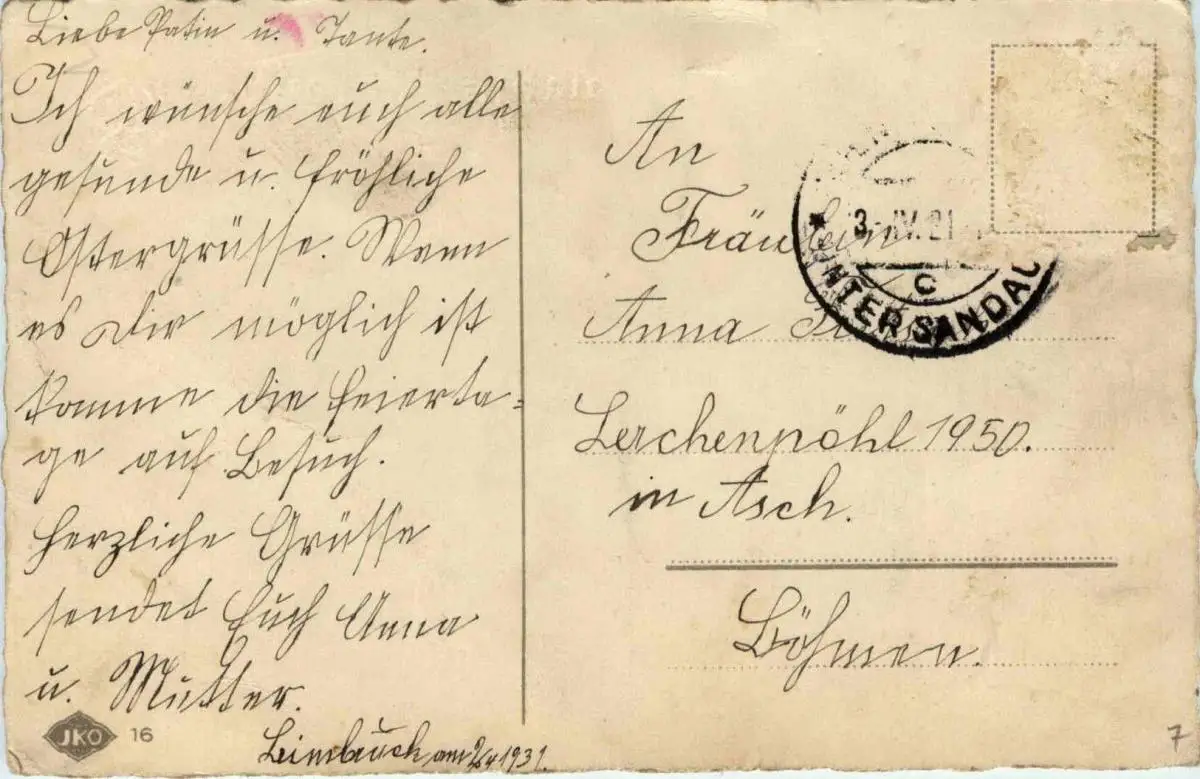 Liebe Patin u. Tante.
Ich wünsche euch alle
gesunde u. fröhliche
Ostergrüsse. Wenn
es Dir möglich ist
komme die Feierta=
ge auf Besuch.
Herzliche Grüsse
sendet Euch Anna
u. Mutter.
Leimbruck am 2/4 1931.
JKO 16
An
Fräulein
Anna
Lerchenpöhl 1950.
in Asch.
Böhmen.
3. IV. 31
C
UNTER SANDAU
7